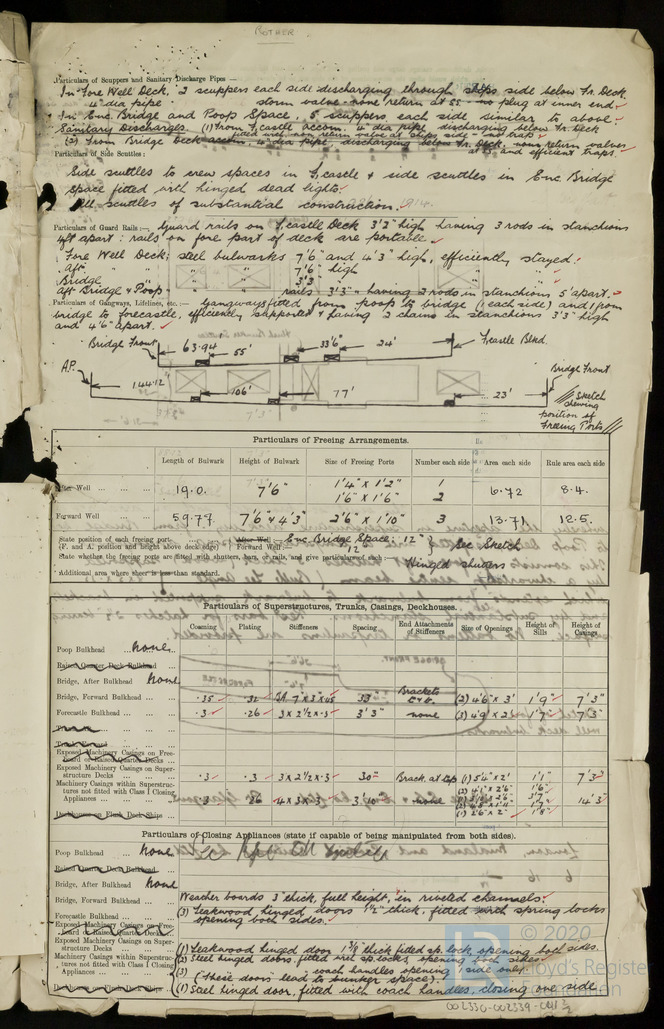 MOTHER
Particulars of Scuppers and Sanitary Discharge Pipes —
In Fore Well Deck, 2 scuppers each side discharging through ships side below Fr. Deck
4" dia pipe storm valve - none return at SS - no plug at inner end.
In Enc. Bridge and Poop Space, 5 scuppers each side similar to above.
Sanitary Discharges. (1) From F'castle accom. 4" dia pipe discharging below Fr. Deck
fitted with non return valve at ships side and traps
(2) From Bridge Deck accom. 4" dia pipe discharging below Fr. Deck, non return valves
at SS and efficient traps.
Particulars of Side Scuttles :
Side scuttles to crew spaces in F'castle & side scuttles in Enc Bridge
space fitted with hinged dead lights.
All scuttles of substantial construction.
Particulars of Guard Rails :— Guard rails on F'castle Deck 3'2" high having 3 rods in stanchions
4ft apart : rails on fore part of deck are portable.
Fore Well Deck, steel bulwarks 7'6" and 4'3" high, efficiently stayed.
Aft " " " 7'6" high
Bridge " " 3'3"
Aft Bridge & Poop " rails 3'3" having 3 rods in stanchions 5' apart.
Particulars of Gangways, Lifelines, etc. :— Gangways fitted from poop to bridge (1 each side) and 1 from
bridge to forecastle, efficiently supported & having 2 chains in stanchions 3'3" high
and 4'6" apart.
Bridge Front 63.94 55' 33'6" 24' F'castle Blkd.
A.P. 144.12" 106' 77' 23' Bridge Front
Sketch
shewing
position of
Freeing Ports
Particulars of Freeing Arrangements.
Length of Bulwark Height of Bulwark Size of Freeing Ports Number each side Area each side Rule area each side
After Well 19.0. 7'6" 1'4" x 1'2" 1 6.72 8.4.
1'6" x 1'6" 2
Forward Well 59.77 7'6" & 4'3" 2'6" x 1'10" 3 13.71 12.5.
State position of each freeing port After Well :— Enc Bridge Space : 12" See Sketch
(F. and A. position and height above deck edge) Forward Well :— 12"
State whether the freeing ports are fitted with shutters, bars or rails, and give particulars :— Hinged shutters
* Additional area where sheer is less than standard.
Particulars of Superstructures, Trunks, Casings, Deckhouses.
Coaming Plating Stiffeners Spacing End Attachments of Stiffeners Size of Openings Height of Sills Height of Casings
Poop Bulkhead None
Raised Quarter Deck Bulkhead
Bridge, After Bulkhead None
Bridge, Forward Bulkhead .35 .32 BA 7 x 3 x 45 33" Brackets (2) 4'6" x 3' 1'9" 7'3"
Forecastle Bulkhead .3 .26 3 x 2½ x .3 3'3" none (3) 4'9" x 1'7" 7'3"
Trunk
Exposed Machinery Casings on Free-
board or Raised Quarter Decks
Exposed Machinery Casings on Super-
structure Decks .3 .3 3 x 2½ x .3 30" Brack at top (1) 5'4" x 2' 1'1" 7'3"
Machinery Casings within Superstruc-
tures not fitted with Class I Closing
Appliances .3 .26 4 x 3 x .3 3'10" none 14'3"
(1) 2'6" x 2' 1'8"
Deckhouses on Flush Deck Ships
Particulars of Closing Appliances (state if capable of being manipulated from both sides).
Poop Bulkhead None
Raised Quarter Deck Bulkhead
Bridge, After Bulkhead None
Bridge, Forward Bulkhead Weather boards 3" thick, full height, in riveted channels.
Forecastle Bulkhead (3) Teakwood hinged doors 1½" thick, fitted with spring locks
opening both sides.
Exposed Machinery Casings on Free-
board or Raised Quarter Decks
Exposed Machinery Casings on Super-
structure Decks (1) Teakwood hinged door 1⅞ thick fitted sp. lock, opening both sides.
Machinery Casings within Superstruc-
tures not fitted with Class I Closing
Appliances (2) Steel hinged doors fitted with sp. locks, opening both sides.
(3) " " " coach handles opening 1 side only.
(These doors lead to bunker space).
Deckhouses on Flush Deck Ships (1) Steel hinged door, fitted with coach handles, closing one side
© 2020
Lloyd's Register
Foundation
002330-002339-041 ½